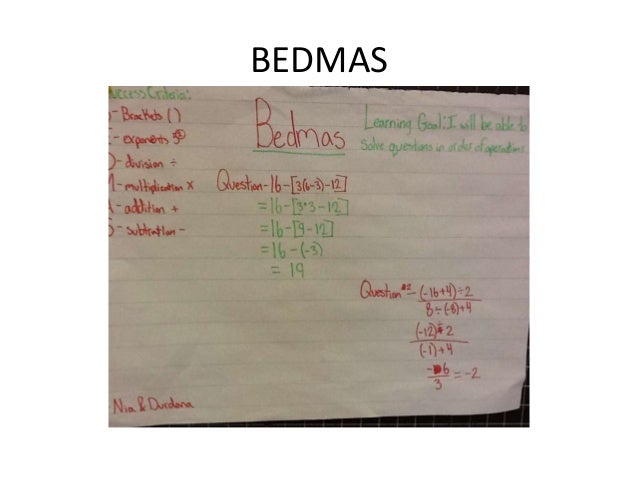 BEDMAS
uccess Criteria:
- Brackets ()
- exponents 5²
- division ÷
- multiplication x
- addition +
- subtration -
Bedmas
Learning Goal: I will be able to
solve questions in order of operations.
Question - 16 - [3(6-3)-12]
= 16 - [3•3 - 12]
= 16 - [9 - 12]
= 16 - (-3)
= 19
Question #2 - (-16+4) ÷ 2
8 ÷ (-8) + 4
(-12) ÷ 2
(-1) + 4
-6 = -2
3
Nia & Durdana